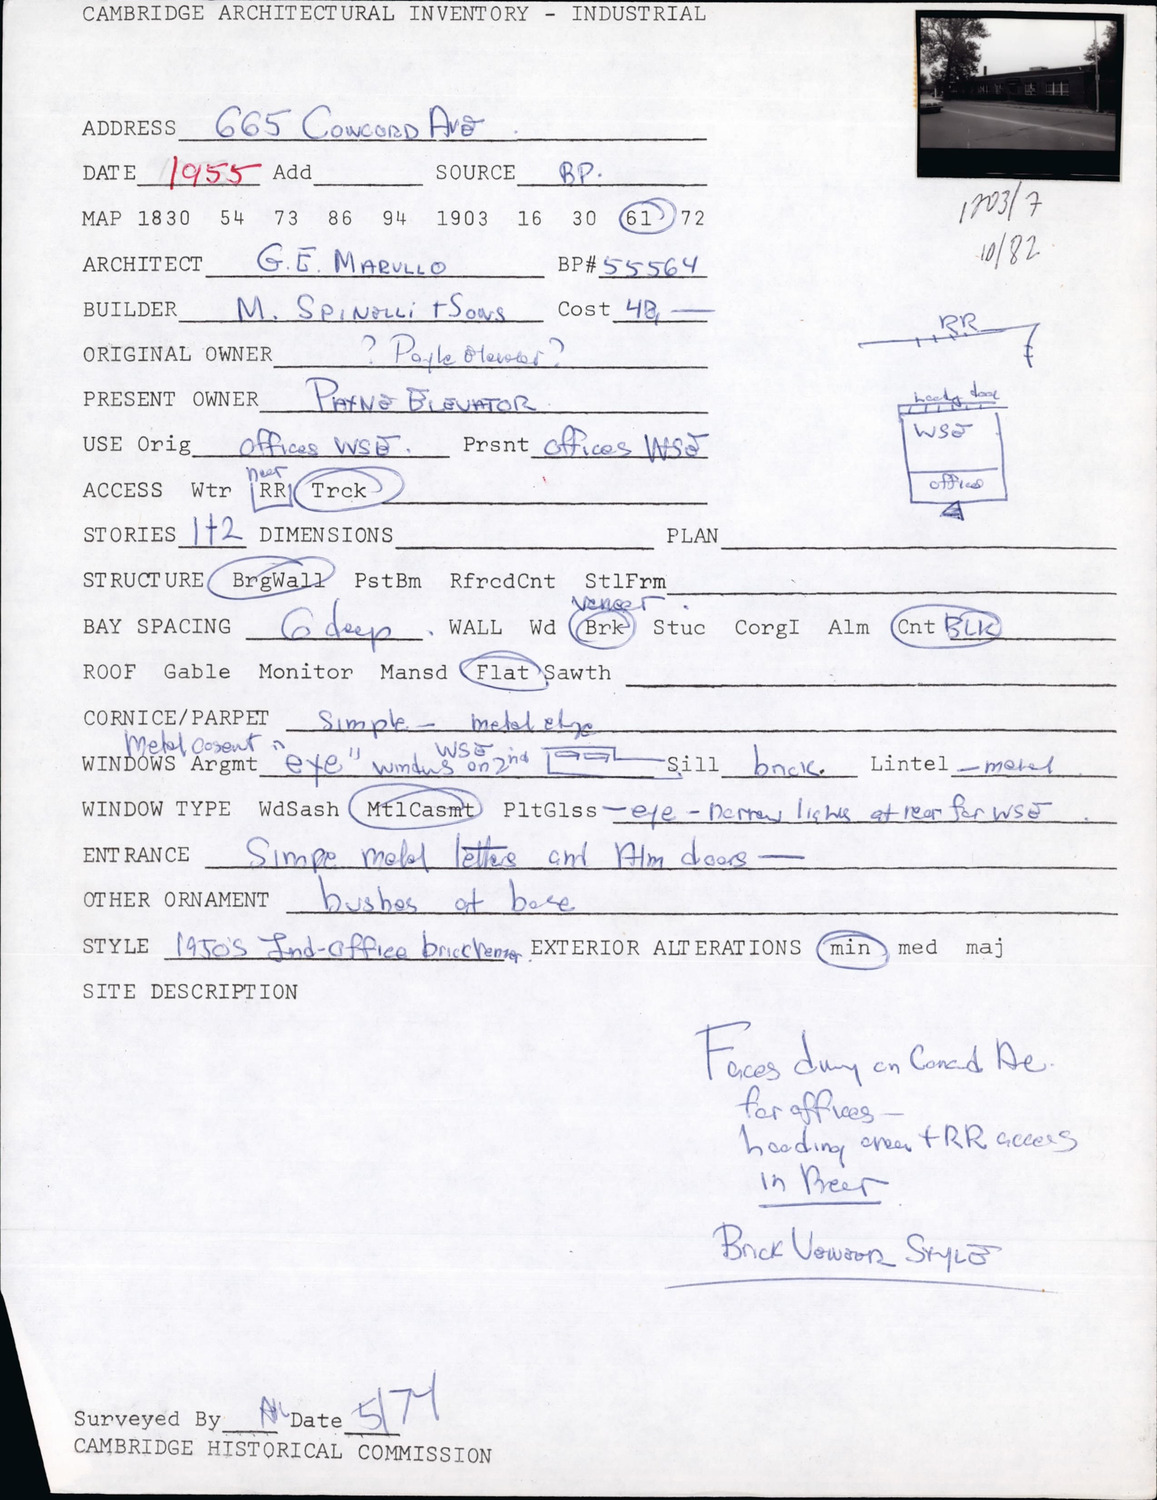 CAMBRIDGE ARCHITECTURAL INVENTORY - INDUSTRIAL
ADDRESS 665 CONCORD AVE
DATE 1955 Add SOURCE BP.
1203/7
MAP 1830 54 73 86 94 1903 16 30 61 72
10/82
ARCHITECT G.E. MARULLO BP# 55564
BUILDER M. SPINELLI + SONS Cost 48, —
RR
ORIGINAL OWNER ? ?
PRESENT OWNER PAYNE ELEVATOR
WSE
USE Orig offices WSE. Prsnt offices WSE
near
offices
ACCESS Wtr RR Trck
STORIES 1+2 DIMENSIONS PLAN
STRUCTURE BrgWall PstBm RfrcdCnt StlFrm
veneer
BAY SPACING 6 deep. WALL Wd Brk Stuc CorgI Alm Cnt BLK
ROOF Gable Monitor Mansd Flat Sawth
CORNICE/PARPET Simple — metal edge
Metal casemt in WSE
WINDOWS Argmt "eye" windows on 2nd Sill brick. Lintel — metal
WINDOW TYPE WdSash MtlCasmt PltGlss — eye - narrow lights at rear for WSE
ENTRANCE Simpe metal letters and Alm doors —
OTHER ORNAMENT bushes at base
STYLE 1950's Ind-office brick Veneer EXTERIOR ALTERATIONS min med maj
SITE DESCRIPTION
Faces on Concord Ave.
for offices —
loading area + RR access
in Rear
BRICK VENEER STYLE
Surveyed By Date 5/74
CAMBRIDGE HISTORICAL COMMISSION